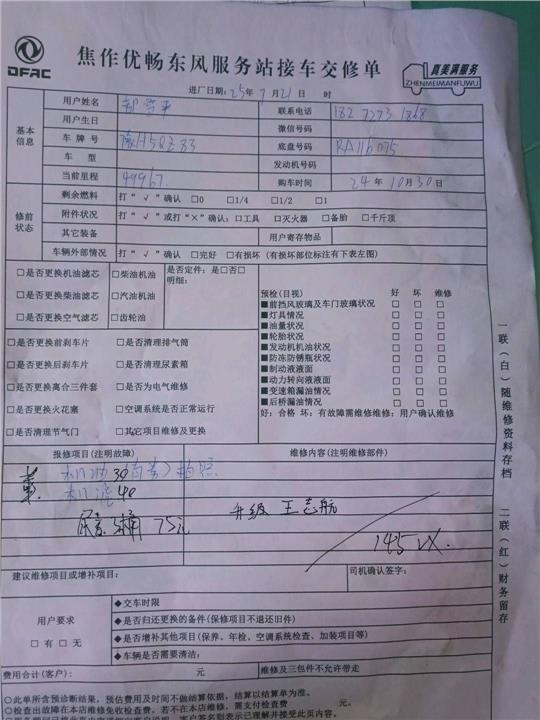 DFAC
焦作优畅东风服务站接车交修单
真美满服务
ZHENMEIMANFUWU
进厂日期: 25年 7月 21日 时
基本信息
用户姓名
联系电话
用户生日 微信号码
车牌号 豫H5QZ83 底盘号码 RA116075
车型 发动机号码
当前里程 49967 购车时间 24年10月30日
修前状态
剩余燃料 打“√”确认 □0 □1/4 □1/2 □1
附件状况 打“√”或打“×”确认: □工具 □灭火器 □备胎 □千斤顶
其它装备 用户寄存物品
车辆外部情况 打“√”确认 □完好 □有损坏 (有损坏部位标注有下表左图)
□是否更换机油滤芯 □柴油机油
□是否更换柴油滤芯 □汽油机油
□是否更换空气滤芯 □齿轮油
是否定件: 是□否□
明细:
□是否更换前刹车片 □是否清理排气筒
□是否更换后刹车片 □是否清理尿素箱
□是否更换离合三件套 □是否为电气维修
□是否更换火花塞 □空调系统是否正常运行
□是否清理节气门 □其它项目维修及更换
预检(目视) 好 坏 维修
■前挡风玻璃及车门玻璃状况 □ □ □
■灯具情况 □ □ □
■油量状况 □ □ □
■轮胎状况 □ □ □
■发动机机油状况 □ □ □
■防冻防锈瓶状况 □ □ □
■制动液液面 □ □ □
■动力转向液液面 □ □ □
■变速箱漏油情况 □ □ □
■后桥漏油情况 □ □ □
好: 合格 坏: 有故障需维修维修: 用户确认维修
报修项目(注明故障) 维修内容(注明维修部件)
机油 30 拍照
机滤 40
尿素 5桶 75元
升级 王志航
145 VX.
建议维修项目或增补项目: 司机确认签字:
用户要求
□有 □无
◆交车时限
◆是否归还更换的备件(保修项目不退还旧件)
◆是否增补其他项目(保养、年检、空调系统检查、加装项目等)
◆车辆是否需要清洁:
费用合计(客户): 元 维修及三包件不允许带走
○此单所含预诊断结果, 预估费用及时间不做结算依据, 结算以结算单为准。
○检查出故障在本店维修免收检查费, 若不在本店维修, 需支付检查费 元。
一联(白)随维修资料存档
二联(红)财务留存